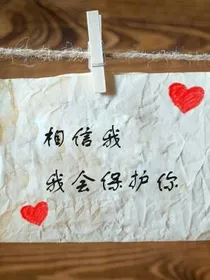 相信我
我会保护你